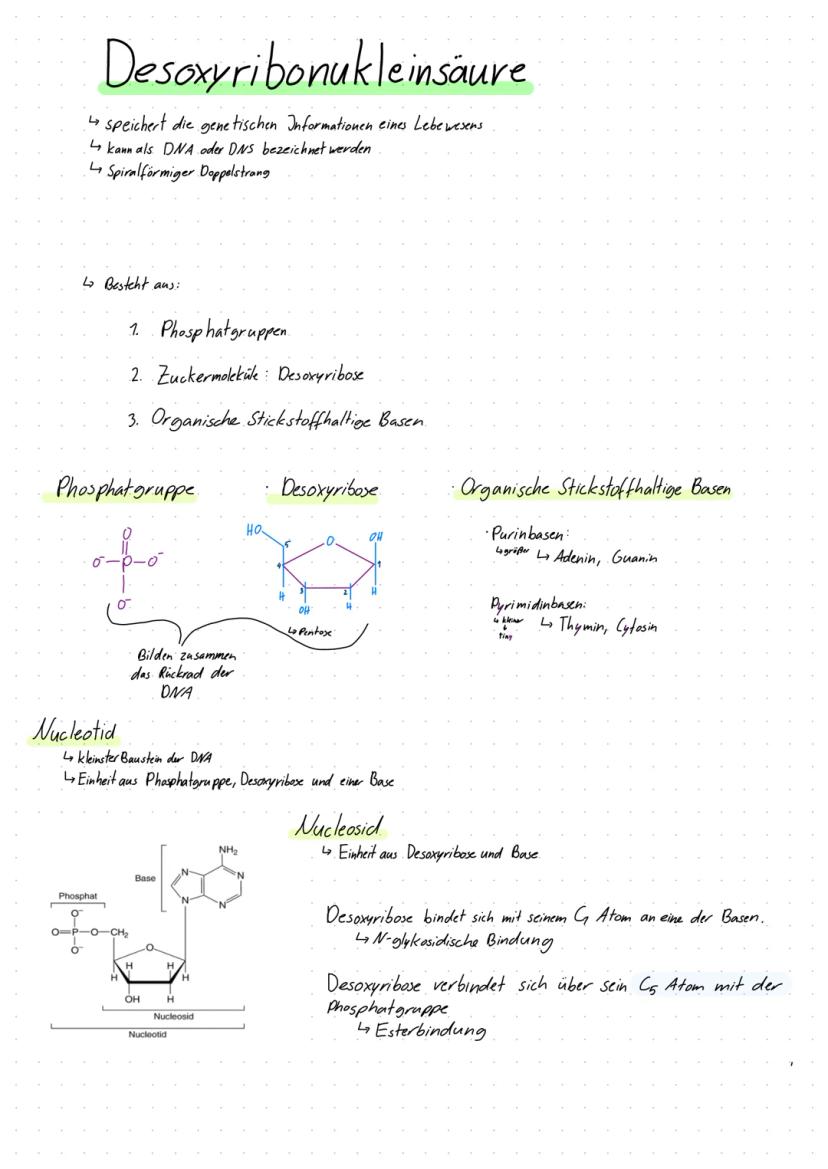 Desoxyribonukleinsäure
↳ speichert die genetischen Informationen eines Lebewesens
↳ kann als DNA oder DNS bezeichnet werden
↳ Spiralförmiger Doppelstrang
↳ Besteht aus:
1. Phosphatgruppen
2. Zuckermoleküle: Desoxyribose
3. Organische Stickstoffhaltige Basen
Phosphatgruppe
O
O⁻ P O⁻
O⁻
Bilden zusammen
das Rückrad der
DNA
· Desoxyribose
HO 5 O OH
4 1
H 3 2 H
OH H
↳ Pentose
· Organische Stickstoffhaltige Basen
· Purinbasen:
↳ größer ↳ Adenin, Guanin
Pyrimidinbasen:
↳ kleiner ↳ Thymin, Cytosin
↓
tiny
Nucleotid
↳ kleinster Baustein der DNA
↳ Einheit aus Phosphatgruppe, Desoxyribose und einer Base
Nucleosid
↳ Einheit aus Desoxyribose und Base
NH₂
Base N N
N N
Phosphat
O⁻
O=P–O–CH₂
O⁻
O
H H
H H
OH H
Nucleosid
Nucleotid
Desoxyribose bindet sich mit seinem C₁ Atom an eine der Basen.
↳ N-glykosidische Bindung
Desoxyribose verbindet sich über sein C₅ Atom mit der
Phosphatgruppe
↳ Esterbindung